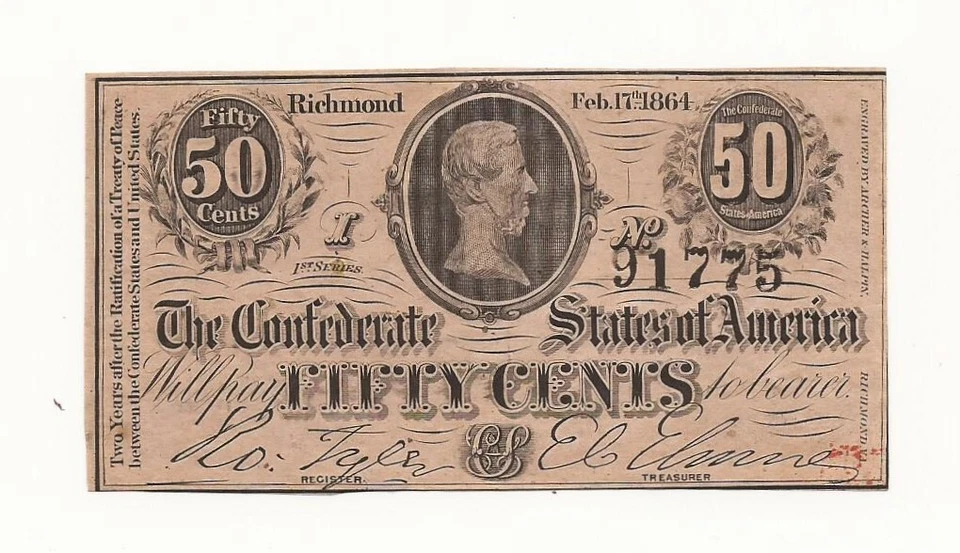 Two Years after the Ratification of a Treaty of Peace
between the Confederate States and United States.
Fifty
50
Cents
Richmond
Feb. 17th 1864
The Confederate
50
States America
I
1ST SERIES.
No
91775
The Confederate States of America
Will pay FIFTY CENTS to bearer.
Ro. Tyler
REGISTER.
CS
TREASURER
ENGRAVED BY ARCHER & HALPIN.
RICHMOND VA